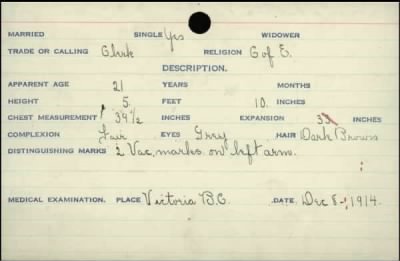 MARRIED SINGLE Yes WIDOWER
TRADE OR CALLING Clerk RELIGION C of E.
DESCRIPTION.
APPARENT AGE 21 YEARS MONTHS
HEIGHT 5 FEET 10. INCHES
CHEST MEASUREMENT 39 1/2 INCHES EXPANSION INCHES
COMPLEXION Fair EYES Grey HAIR Dark Brown
DISTINGUISHING MARKS 2 Vac, marks on left arm.
MEDICAL EXAMINATION. PLACE Victoria B.C. DATE Dec 8-1914.